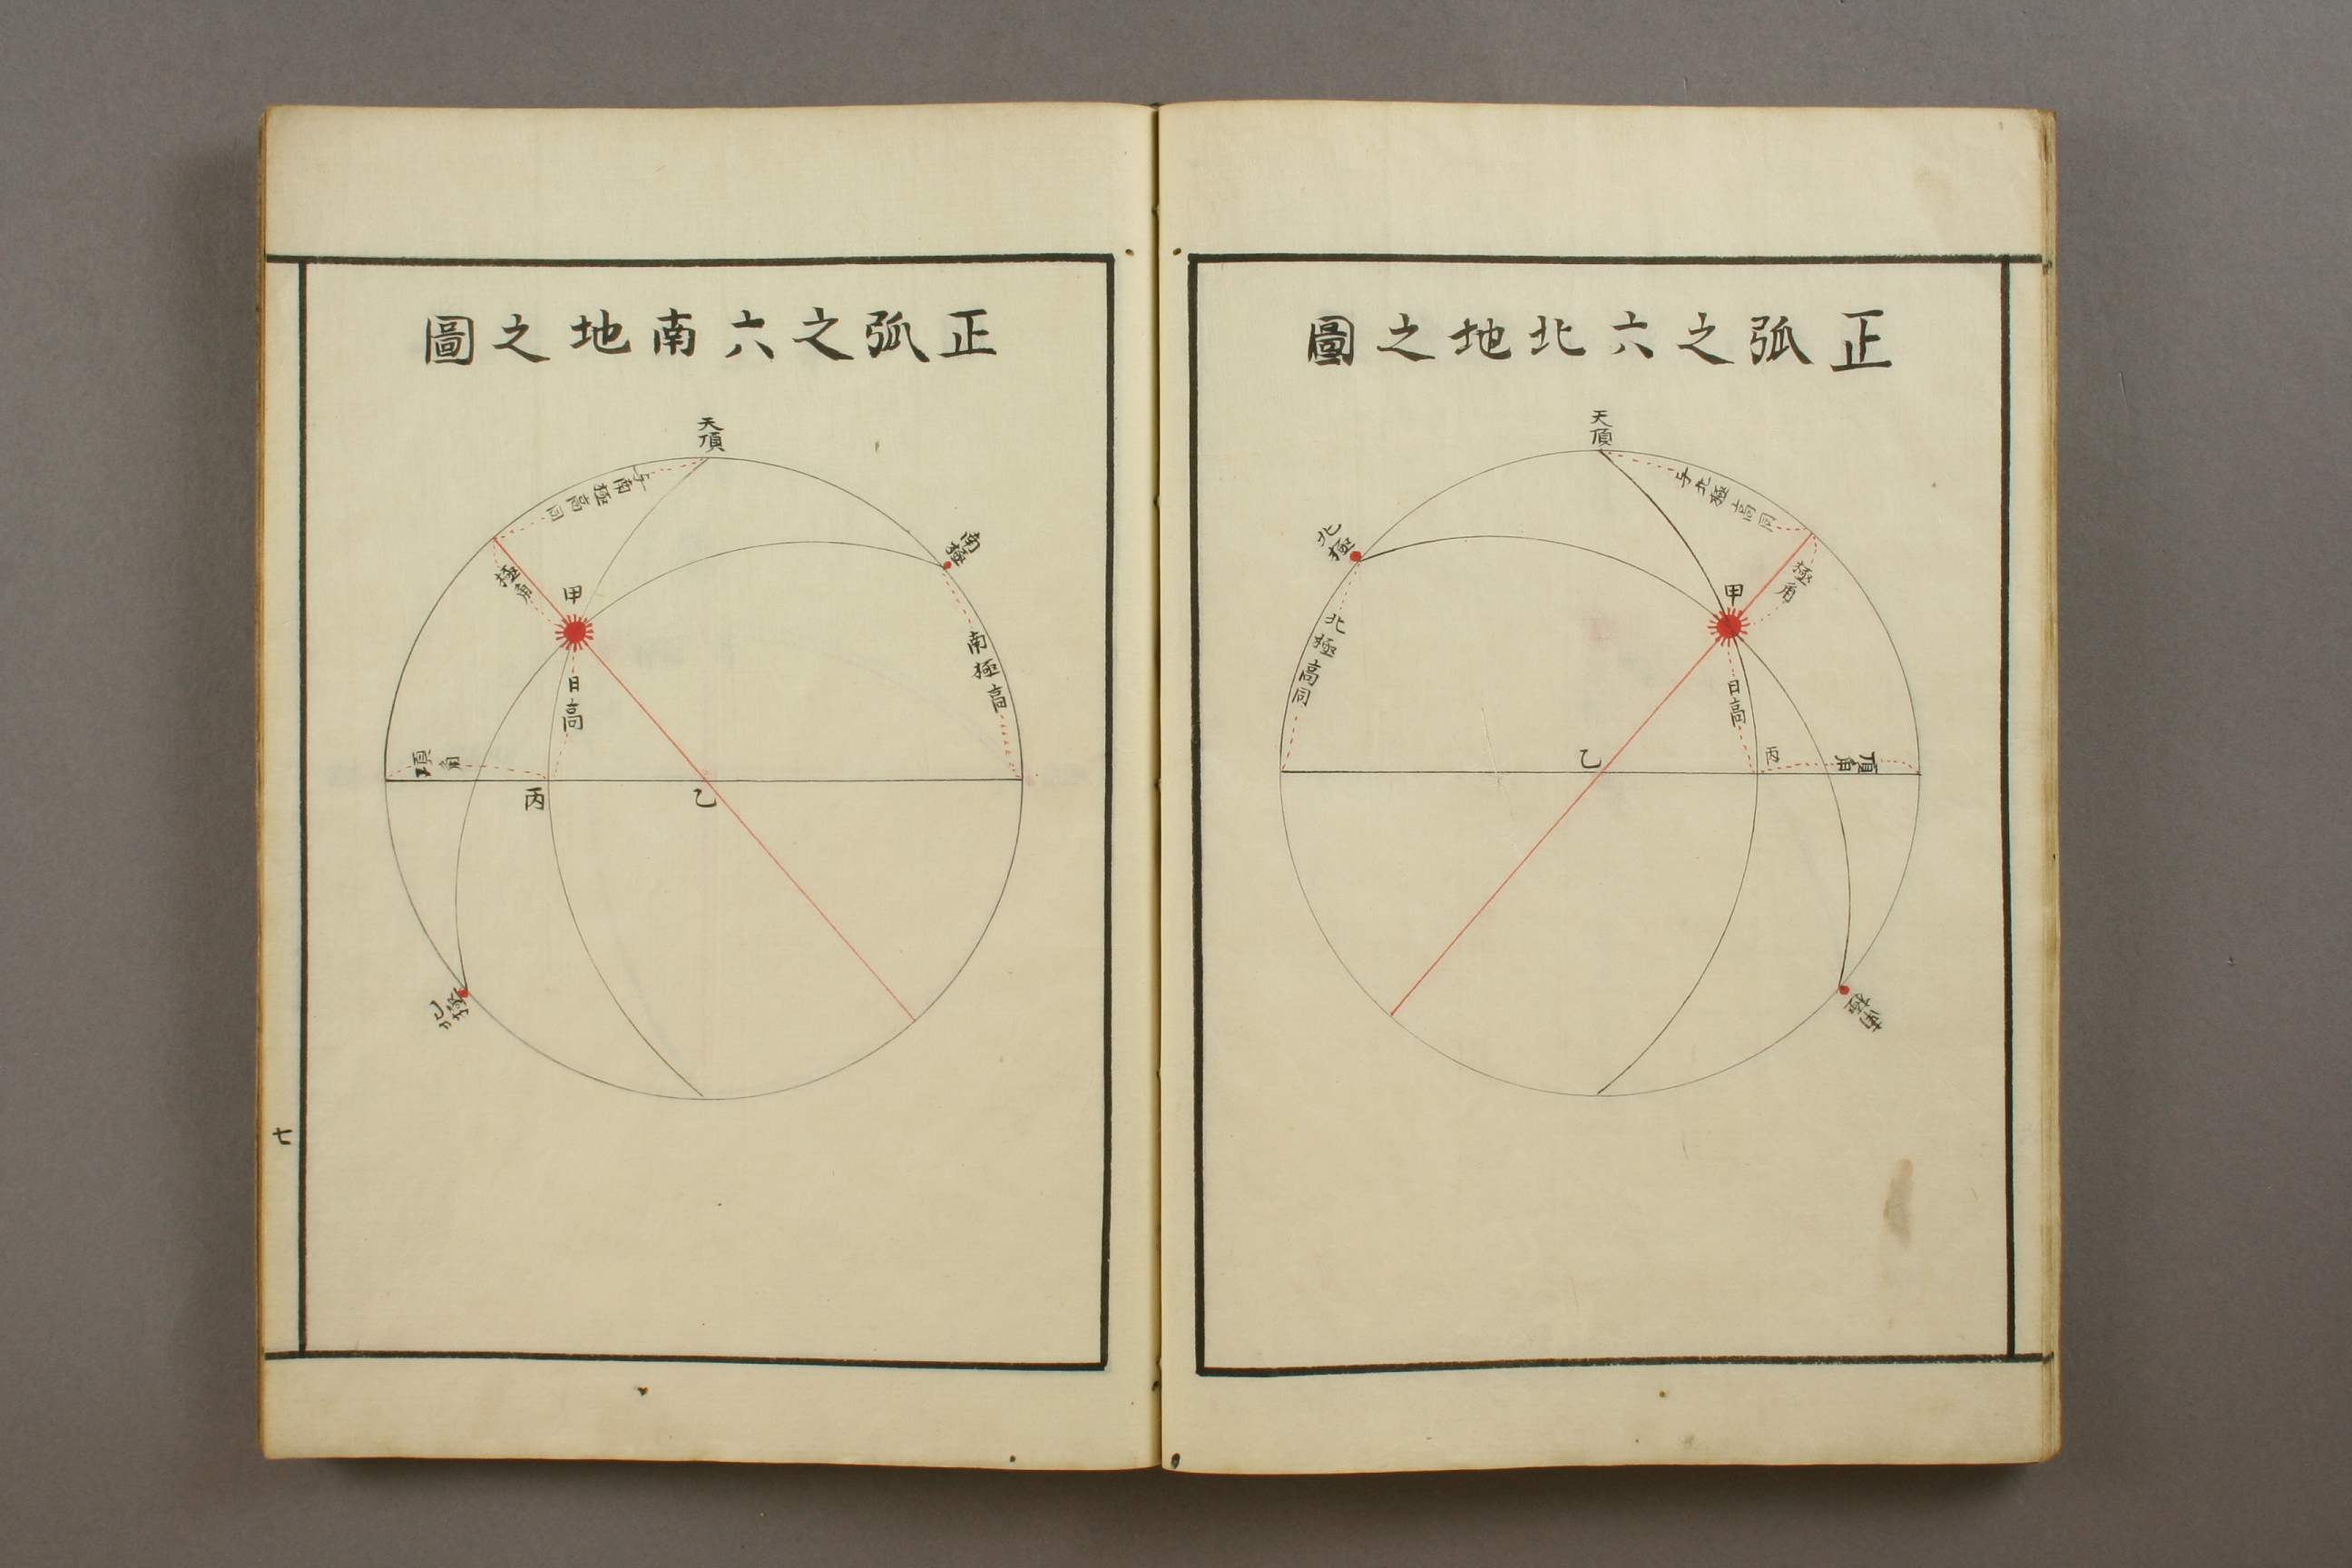 正弧之六北地之圖
天頂
与北極高同
北極
極角
甲
北極高同
日高
乙
丙
頂角
南極
正弧之六南地之圖
天頂
与南極高同
南極
極角
甲
南極高
日高
頂角
丙
乙
北極
七